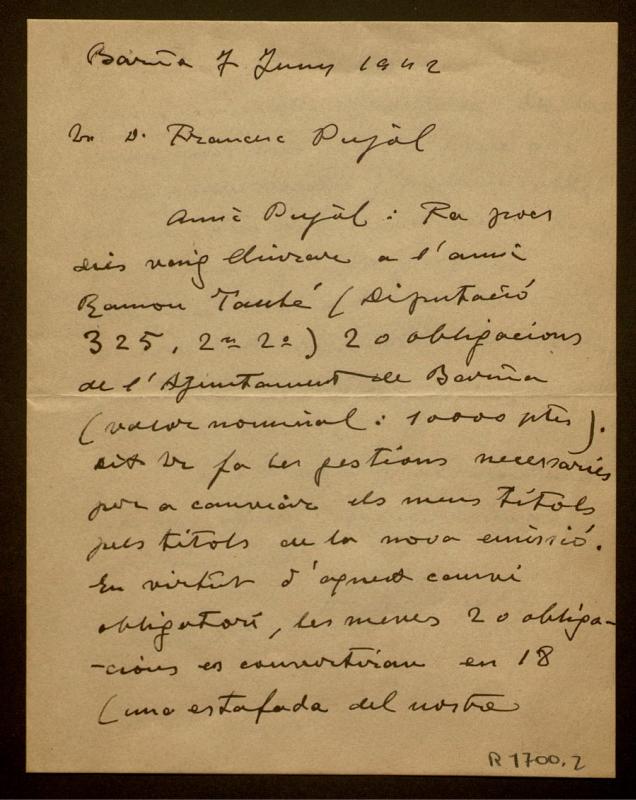 Barña 7 Juny 1942
Sr. D. Francesc Pujol
Amic Pujol: Fa pocs
dies vaig lliurar a l'amic
Ramon Tauhé (Diputació
325, 2n 2a) 20 obligacions
de l'Ajuntament de Barña
(valor nominal: 10000 ptes).
Dit Sr fa les gestions necessàries
per a canviar els meus títols
pels títols de la nova emissió.
En virtut d'aquest canvi
obligatori, les meves 20 obliga-
-cions es convertiran en 18
(una estafada del nostre
R 1700.2